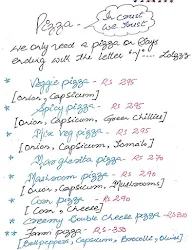 Pizza
In crust
we trust
We only need a pizza on days
ending with the letter 'y'...
* Veggie pizza - RS 295
[Onion, Capsicum]
* Spicy pizza - RS 295
[Onion, Capsicum, Green Chillies]
* Mix Veg pizza - RS 295
[Onion, Capsicum, Tomato]
* Margherita pizza - RS 270
* Mushroom pizza - RS 290
[Onion, Capsicum, Mushrooms]
* Corn pizza - RS 290
[Corn, Cheese]
* Creamy Double Cheese pizza -
* Farm pizza - RS-350
[Bellpeppers, Capsicum, Broccoli, Olives]